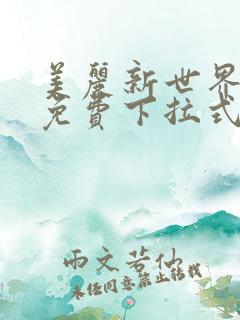 美麗新世界
免費下拉式
雨文若仙
未经同意禁止转载